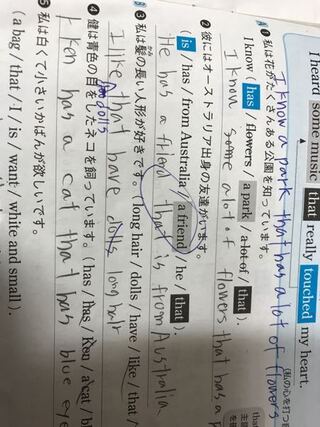 I heard some music that really touched my heart.
(私の心を打つ
I know a park that has a lot of flowers
❶ 私は花がたくさんある公園を知っています。
I know ( has / flowers / a park / a lot of / that ).
I know some a lot of flowers that has a
❷ 彼にはオーストラリア出身の友達がいます。
( is / has / from Australia / a friend / he / that ).
He has a friend that is from Australia
❸ 私は髪の長い人形が好きです。( long hair / dolls / have / like / that /
I like dolls that have long hair
❹ 健は青色の目をしたネコを飼っています。( has / has / Ken / a cat /
Ken has a cat that has blue eye
❺ 私は白くて小さいかばんが欲しいです。
( a bag / that / I / is / want / white and small ).